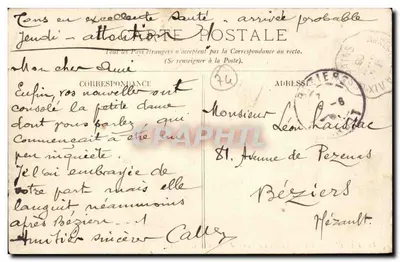 Tous en excellente santé - arrivée probable
Jeudi - attention !
CARTE POSTALE
Tous les Pays étrangers n'acceptent pas la Correspondance au recto.
(Se renseigner à la Poste).
Mon cher ami
CORRESPONDANCE
Enfin, vos nouvelles ont
consolé la petite dame
dont vous parlez, qui
commençait à être un
peu inquiète.
Je l'ai embrassée de
votre part mais elle
languit néanmoins
après Béziers
Amitiés sincères
74
ADRESSE
BÉZIERS
Monsieur
Léon
81, Avenue de Pezenas
Béziers
Hérault
CPAPHIL